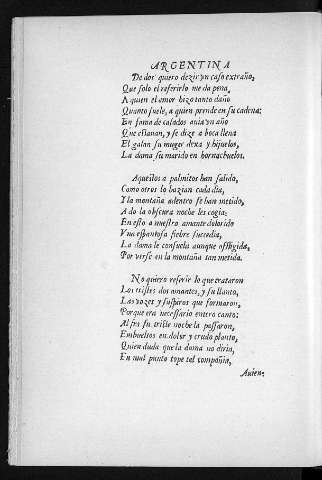 ARGENTINA
De dos quiero dezir vn caso extraño,
Que solo el referirlo me da pena,
A quien el amor hizo tanto daño
Quanto suele, a quien prende en su cadena:
En fama de casados auia vn año
Que estauan, y se dize a boca llena
El galan su muger dexa y hijuelos,
La dama su marido en hornachuelos.
Aquestos a palmitos han salido,
Como otros lo hazian cada dia,
Y la montaña adentro se han metido,
A do la obscura noche les cogia:
En esto a nuestro amante dolorido
Vna espantosa fiebre sucedia,
La dama le consuela aunque afligida,
Por verse en la montaña tan metida.
No quiero referir lo que trataron
Los tristes dos amantes, y su llanto,
Las vozes y suspiros que formaron,
Porque era necessario entero canto:
Al fin su triste noche la passaron,
Embueltos en dolor y crudo planto,
Quien duda que la dama no diria,
En mal punto tope tal compañia,
Auien-